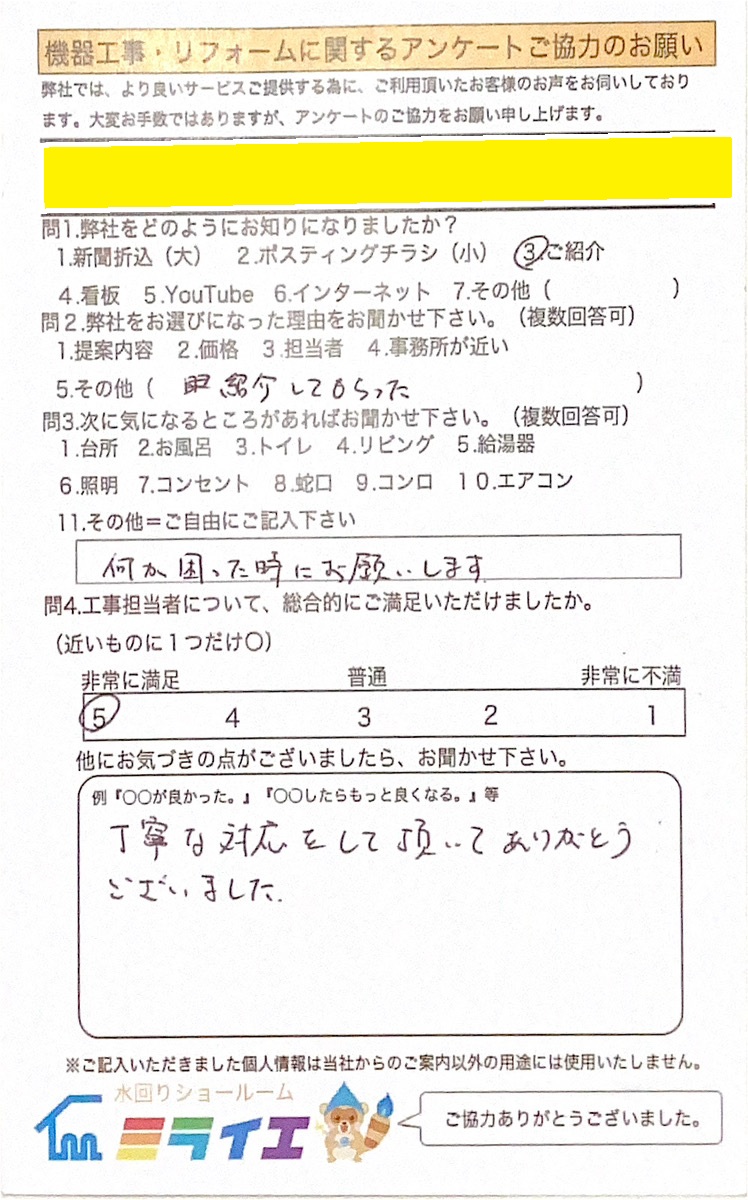 機器工事・リフォームに関するアンケートご協力のお願い
弊社では、より良いサービスご提供する為に、ご利用頂いたお客様のお声をお伺いしており
ます。大変お手数ではありますが、アンケートのご協力をお願い申し上げます。
問1.弊社をどのようにお知りになりましたか？
1.新聞折込（大） 2.ポスティングチラシ（小） 3.ご紹介
4.看板 5.YouTube 6.インターネット 7.その他（ ）
問2.弊社をお選びになった理由をお聞かせ下さい。（複数回答可）
1.提案内容 2.価格 3.担当者 4.事務所が近い
5.その他（ 紹介してもらった ）
問3.次に気になるところがあればお聞かせ下さい。（複数回答可）
1.台所 2.お風呂 3.トイレ 4.リビング 5.給湯器
6.照明 7.コンセント 8.蛇口 9.コンロ 10.エアコン
11.その他＝ご自由にご記入下さい
何か困った時にお願いします
問4.工事担当者について、総合的にご満足いただけましたか。
（近いものに1つだけ〇）
非常に満足 普通 非常に不満
5 4 3 2 1
他にお気づきの点がございましたら、お聞かせ下さい。
例『〇〇が良かった。』『〇〇したらもっと良くなる。』等
丁寧な対応をして頂いてありがとう
ございました.
※ご記入いただきました個人情報は当社からのご案内以外の用途には使用いたしません。
水回りショールーム
ミライエ
ご協力ありがとうございました。